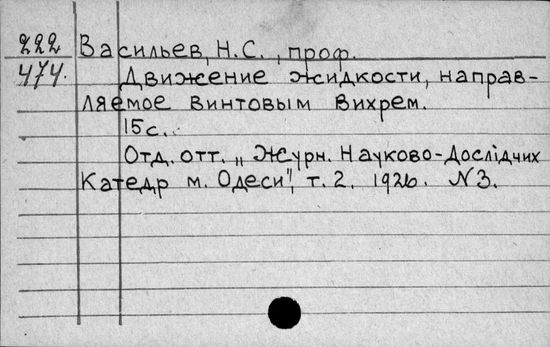 222 Васильев, Н.С., проф.
474. Движение жидкости, направ-
ляемое винтовым вихрем.
15 с.
Отд. отт. „Журн. Науково-Дослідчих
Катедр м. Одеси", т. 2. 1926. N3.